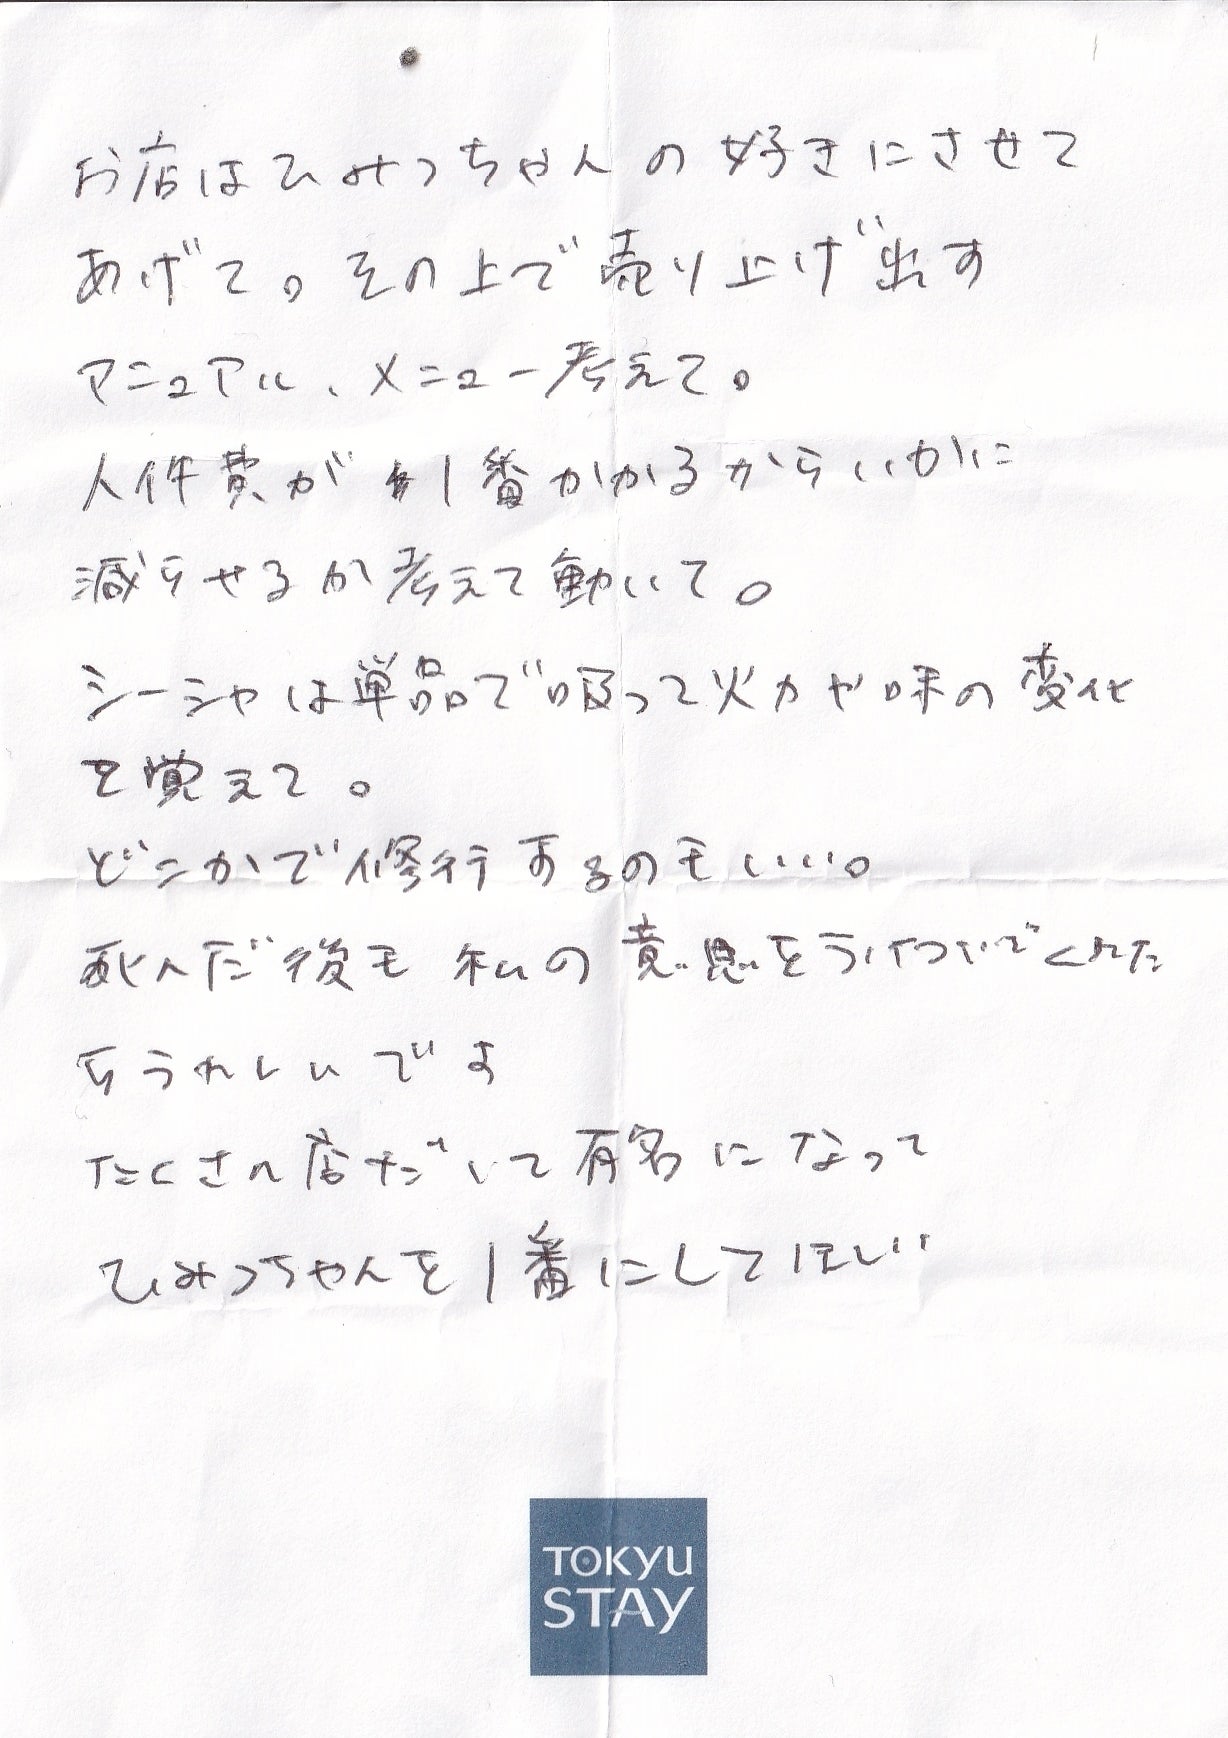 お店はひみつちゃんの好きにさせて
あげて。その上で売り上げ出す
マニュアル、メニュー考えて。
人件費が1番かかるからいかに
減らせるか考えて動いて。
シーシャは単品で吸って火力や味の変化
を覚えて。
どこかで修行するのもいい。
死んだ後も私の意思をうけついでくれた
らうれしいです
たくさん店だいて有名になって
ひみつちゃんを1番にしてほしい
TOKYU
STAY